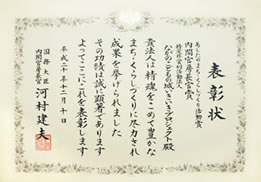 表彰状
あしたのまち・くらしづくり活動賞
内閣官房長官賞
特定非営利活動法人
ながのこどもの城いきいきプロジェクト殿
貴法人は精魂をこめて豊かな
まち・くらしづくりに尽力され
成果を挙げられました
その功績は誠に顕著であります
よってここにこれを表彰します
平成二十年十二月十日
国務大臣
内閣官房長官
河村建夫